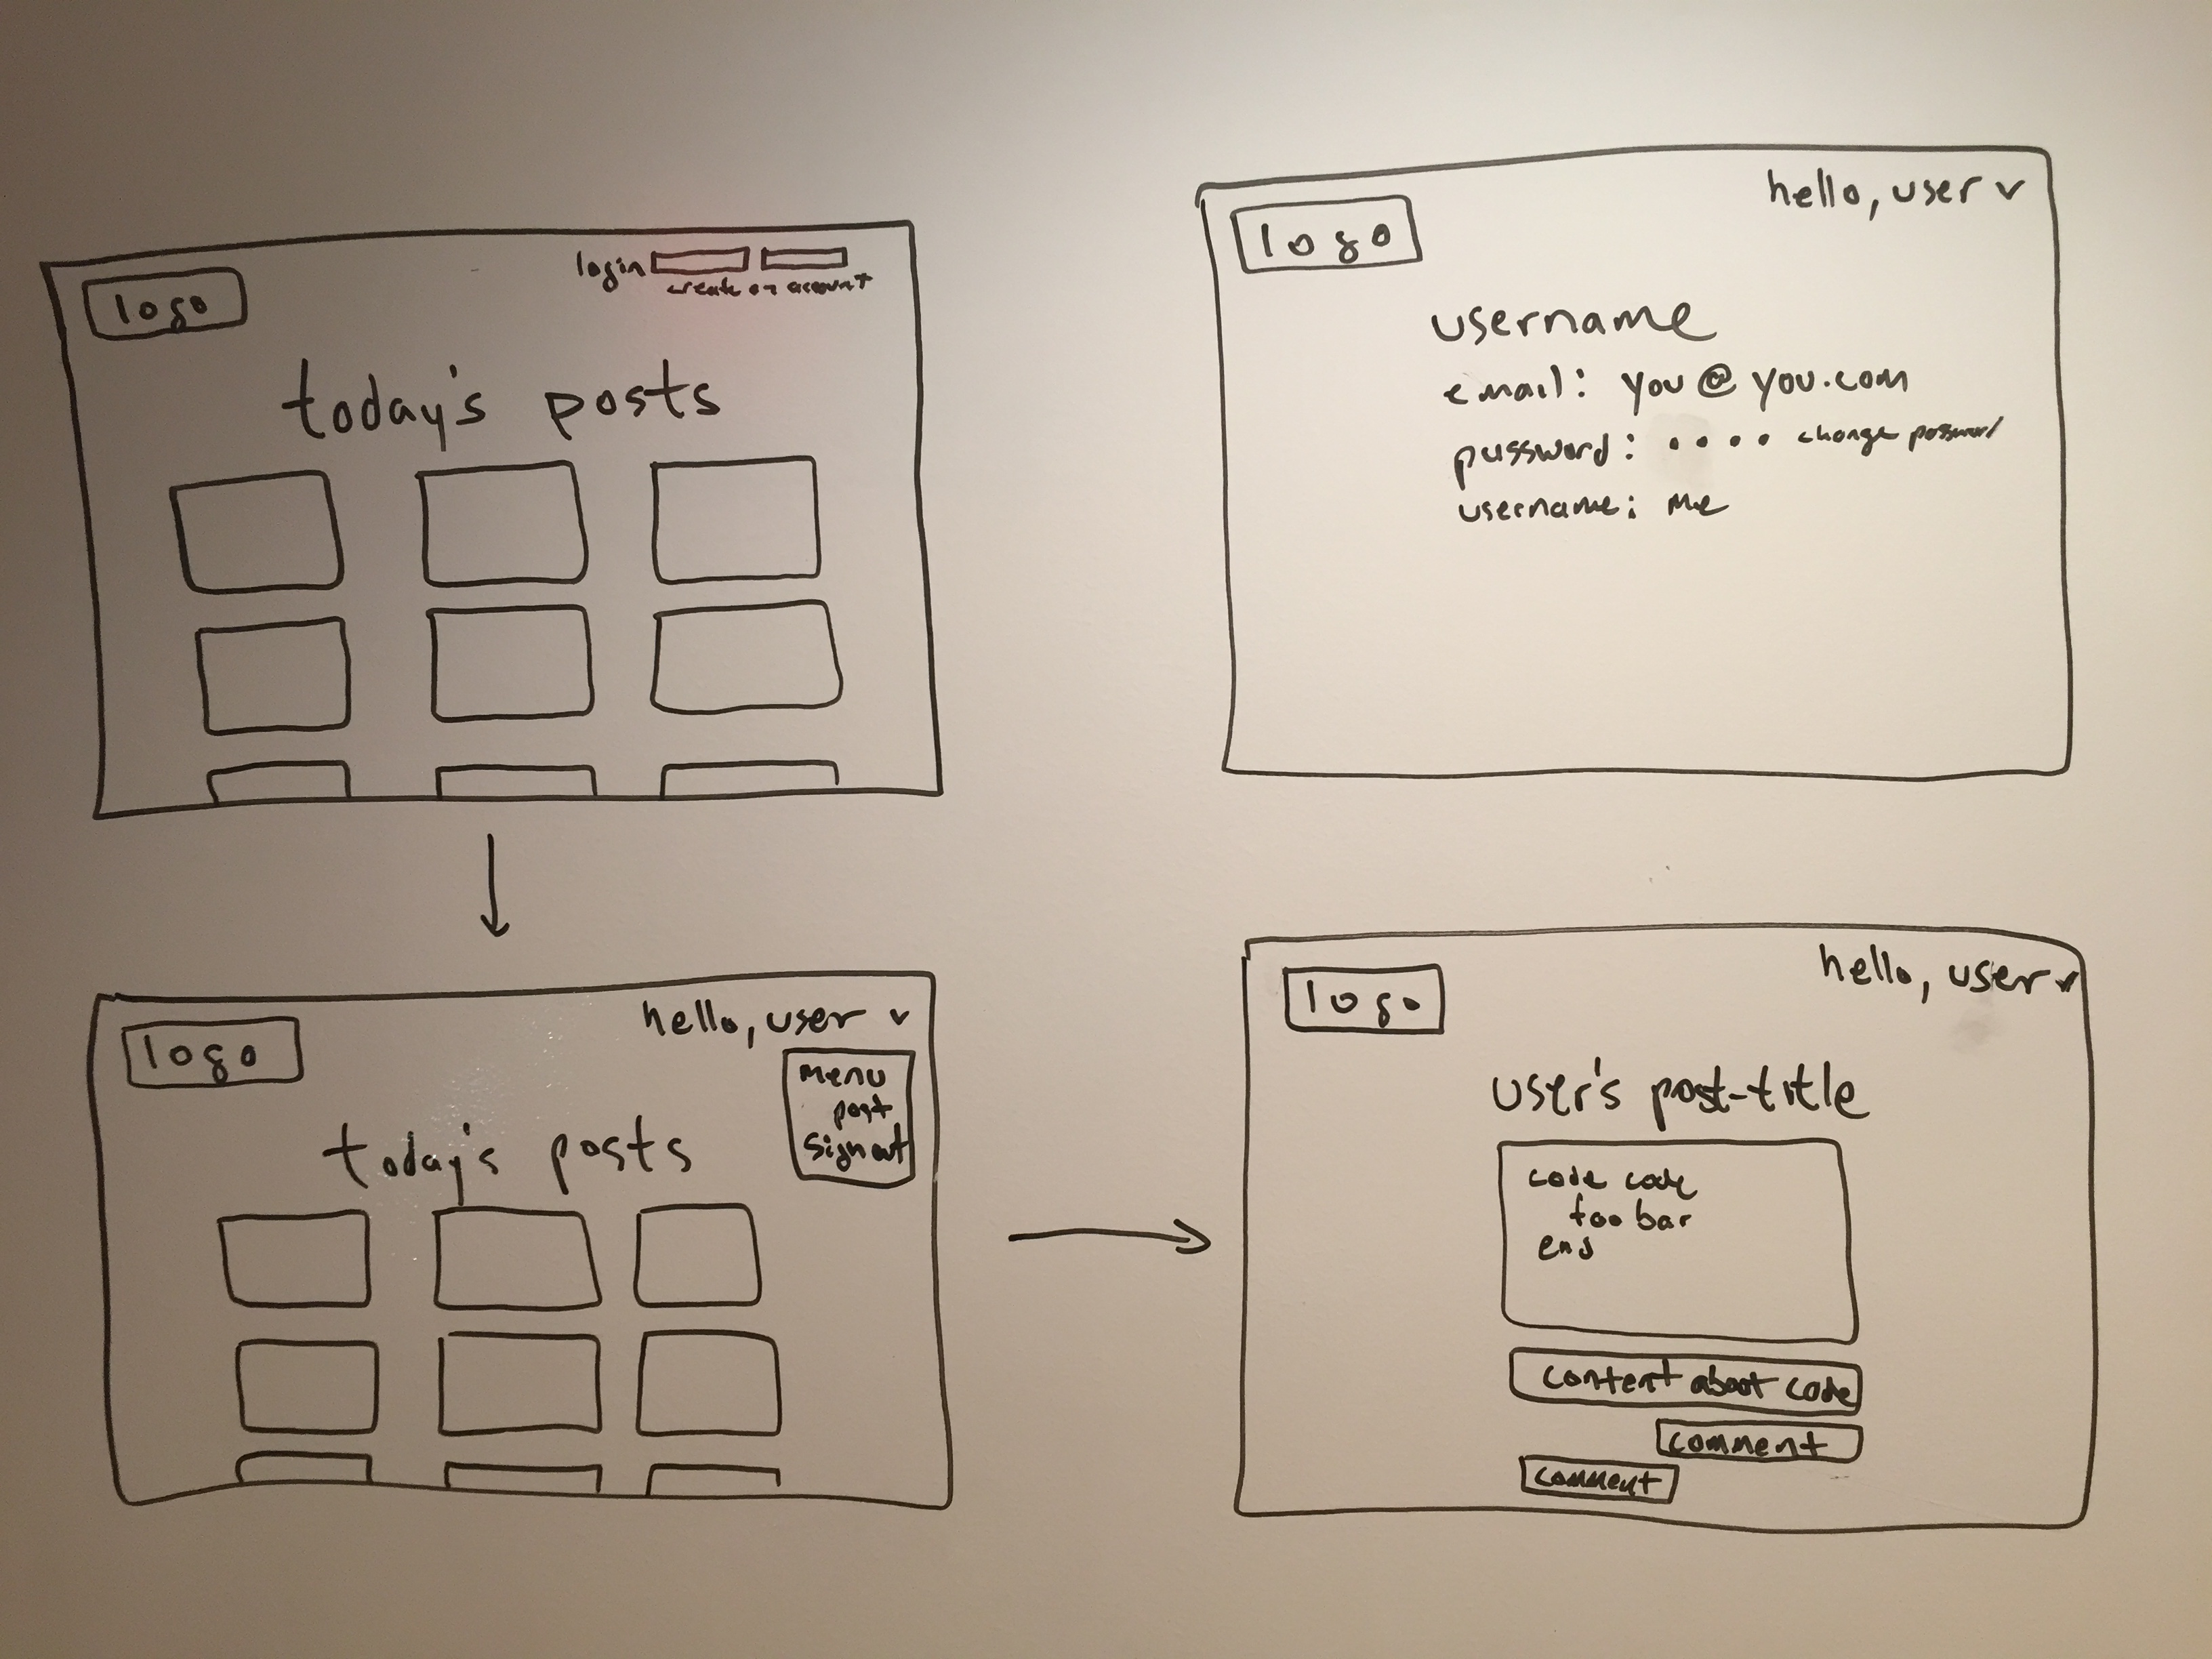 login
create an account
logo
today's posts
hello, user v
logo
username
email: you@you.com
password: •••• change password
username: me
hello, user v
logo
menu
post
sign out
today's posts
hello, user v
logo
user's post-title
code code
foo bar
end
content about code
comment
comment